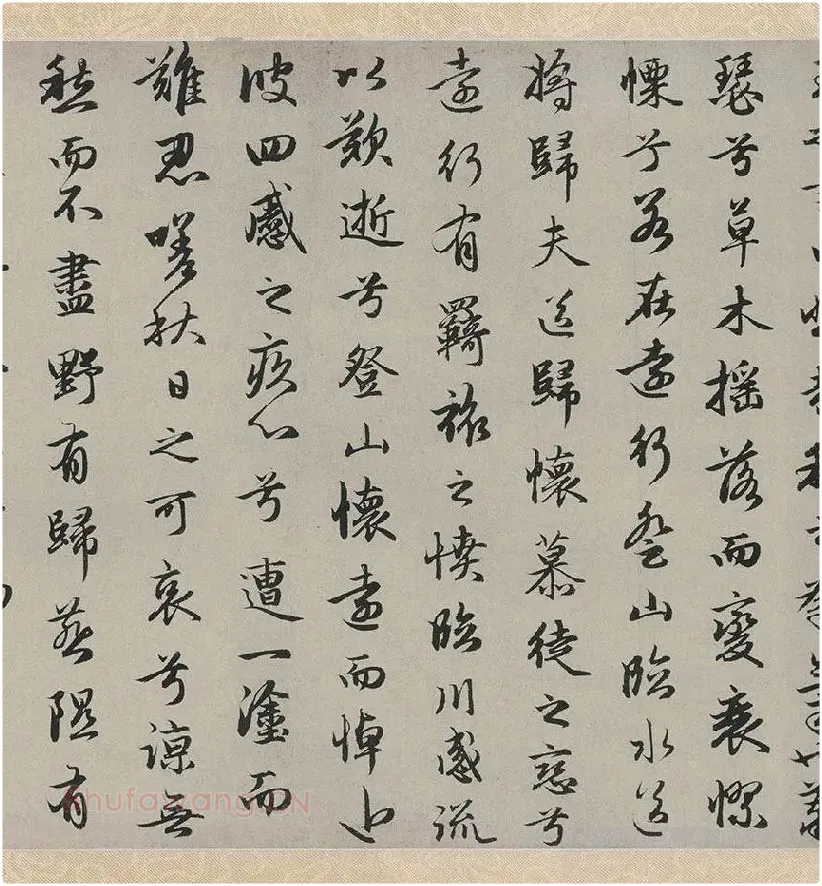 瑟兮草木摇落而變衰憭
慄兮若在遠行登山臨水送
將歸夫送歸懷慕徒之戀兮
遠行有羈旅之憤臨川感流
以歎逝兮登山懷遠而悼近
彼四慼之疚心兮遭一塗而
難忍嗟秋日之可哀兮諒無
愁而不盡野有歸燕隰有